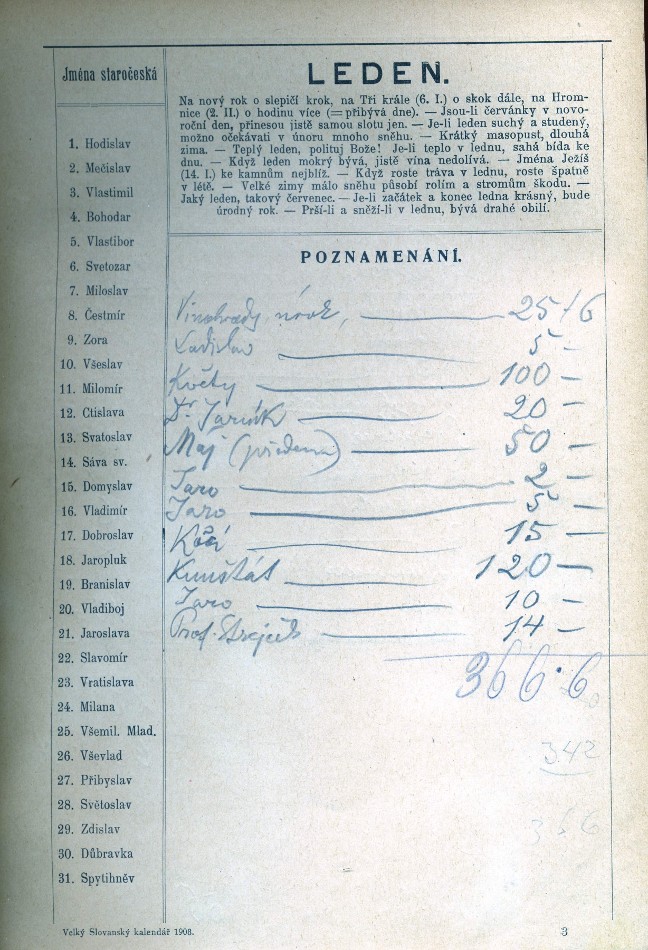 Jména staročeská
1. Hodislav
2. Mečislav
3. Vlastimil
4. Bohodar
5. Vlastibor
6. Svetozar
7. Miloslav
8. Čestmír
9. Zora
10. Všeslav
11. Milomír
12. Ctislava
13. Svatoslav
14. Sáva sv.
15. Domyslav
16. Vladimír
17. Dobroslav
18. Jaropluk
19. Branislav
20. Vladiboj
21. Jaroslava
22. Slavomír
23. Vratislava
24. Milana
25. Všemil. Mlad.
26. Vševlad
27. Přibyslav
28. Světoslav
29. Zdislav
30. Důbravka
31. Spytihněv
LEDEN.
Na nový rok o slepičí krok, na Tři krále (6. I.) o skok dále, na Hrom-
nice (2. II.) o hodinu více (= přibývá dne). — Jsou-li červánky v novo-
roční den, přinesou jistě samou slotu jen. — Je-li leden suchý a studený,
možno očekávati v únoru mnoho sněhu. — Krátký masopust, dlouhá
zima. — Teplý leden, polituj Bože! Je-li teplo v lednu, sahá bída ke
dnu. — Když leden mokrý bývá, jistě vína nedolívá. — Jména Ježíš
(14. I.) ke kamnům nejblíž. — Když roste tráva v lednu, roste špatně
v létě. — Velké zimy málo sněhu působí rolím a stromům škodu. —
Jaký leden, takový červenec. — Je-li začátek a konec ledna krásný, bude
úrodný rok. — Prší-li a sněží-li v lednu, bývá drahé obilí.
POZNAMENÁNÍ.
Vinohrady — 25 / 6
Ladislav — 5 —
Květy — 100 —
Dr. — 20 —
Máj — 50 —
Jaro — 2 —
Jaro — 5 —
Kočí — 15 —
Kunštát — 120 —
Jaro — 10 —
Prof. — 14 —
366·6
342
366
Velký Slovanský kalendář 1908.
3